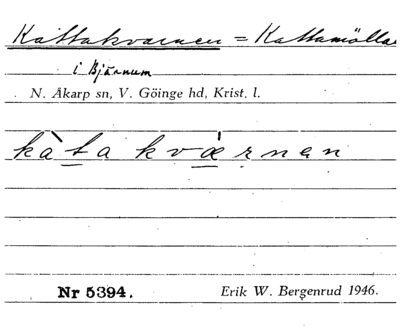 Kattakvarnen = Kattamölla
i Bjärnum
N. Åkarp sn, V. Göinge hd, Krist. l.
kàta kvæ̀rnən
Nr 5394.
Erik W. Bergenrud 1946.